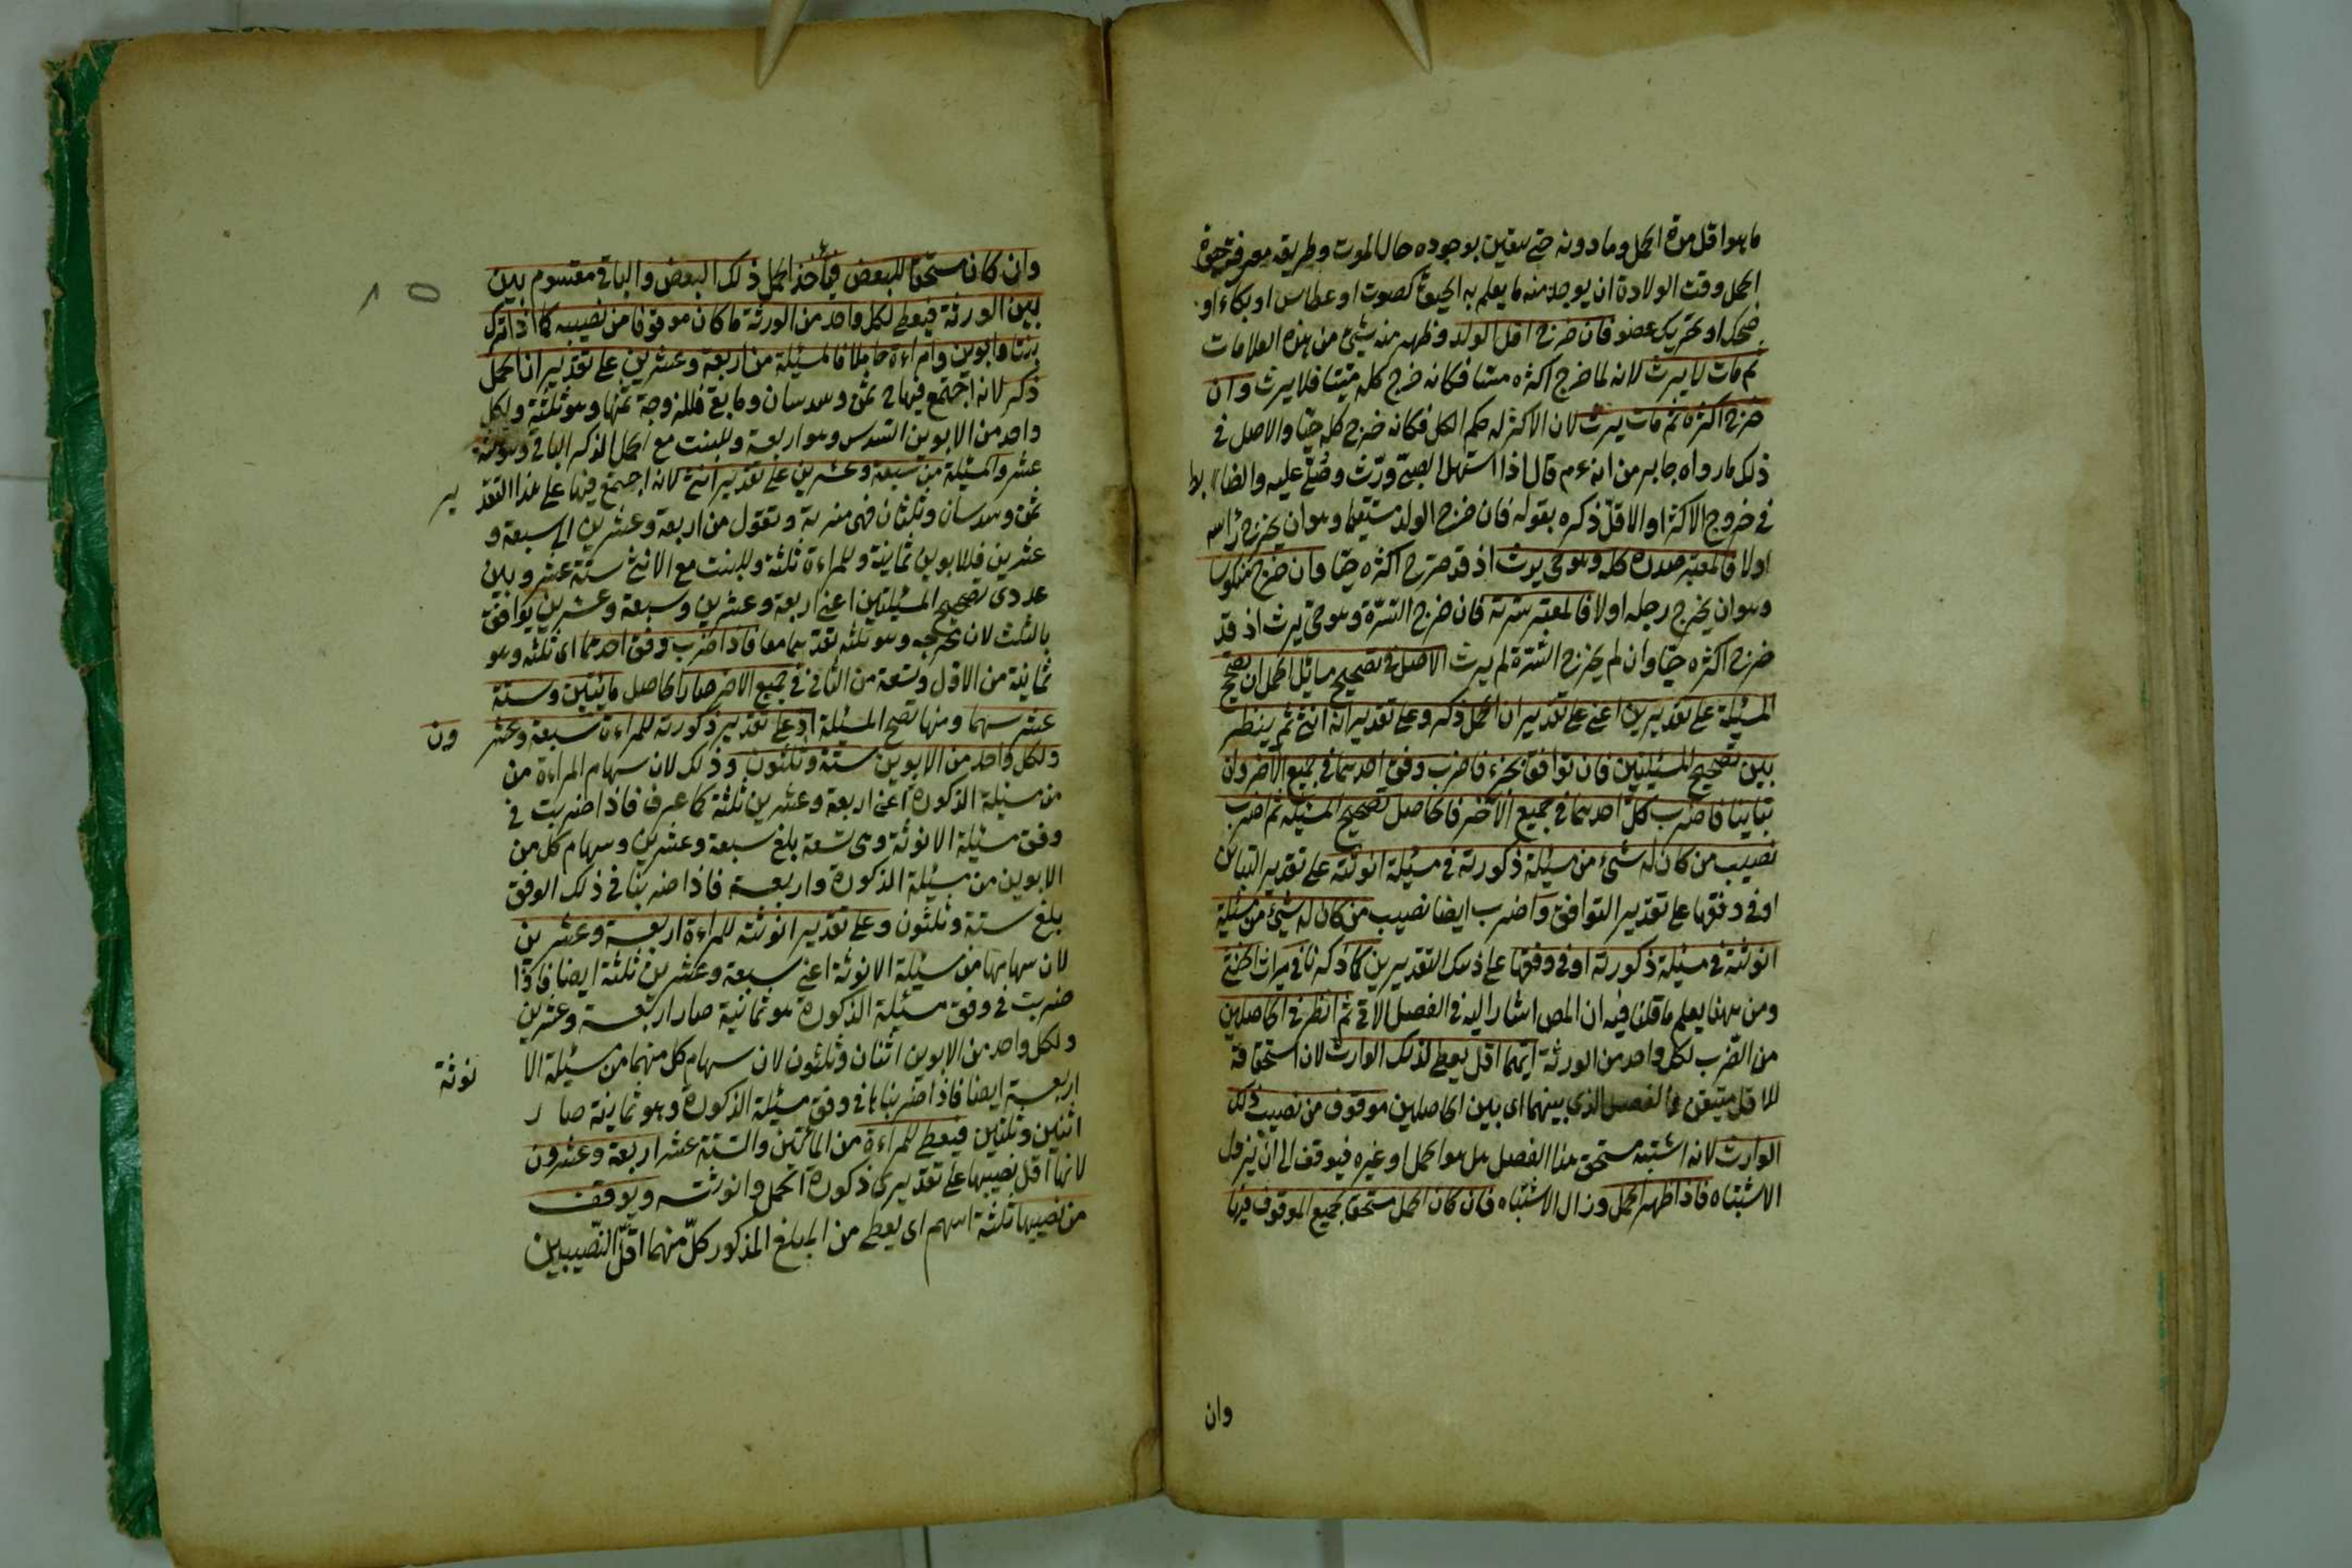 ما هو اقل مدة الحمل وما دونه حتى يتقين بوجوده حال الموت وطريقه معرفة حيوة
الحمل وقت الولادة ان يوجد منه ما يعلم به الحيوة كصوت او عطاس او بكاء او
ضحك او تحريك عضو فان خرج اقل الولد وظهر منه شئ من هذه العلامات
ثم مات لا يرث لانه لما خرج اكثره ميتا فكانه خرج كله ميتا فلا يرث وان
خرج اكثره ثم مات يرث لان الاكثر له حكم الكل فكانه خرج كله حيا والاصل في
ذلك ما رواه جابر من انه عم قال اذا استهل الصبي ورث وصلي عليه والضابط
في خروج الاكثر او الاقل ذكره بقوله فان خرج الولد مستقيما وهو ان يخرج رأسه
اولا فالمعتبر صدره كله وهو حي يرث اذ قد خرج اكثره حيا وان خرج منكوسا
وهو ان يخرج رجله اولا فالمعتبر سرته فان خرج السرة وهو حي يرث اذ قد
خرج اكثره حيا وان لم يخرج السرة لم يرث الاصل في تصحيح مسائل الحمل ان تصحح
المسئلة على تقديرين اعني على تقدير ان الحمل ذكر وعلى تقدير انه انثى ثم ينظر
بين تصحيح المسئلتين فان توافقا بجزء فاضرب وفق احدهما في جميع الاخر وان
تباينا فاضرب كل احدهما في جميع الاخر فالحاصل تصحيح المسئلة ثم اضرب
نصيب من كان له شئ من مسئلة ذكورته في مسئلة انوثته على تقدير التباين
او في وفقها على تقدير التوافق واضرب ايضا نصيب من كان له شئ من مسئلة
انوثته في مسئلة ذكورته او في وفقها على ذينك التقديرين كما ذكرنا في ميراث الخنثى
ومن ههنا يعلم ما قلنا فيه ان المص اشار اليه في الفصل الاتي ثم انظر في الحاصلين
من الضرب لكل واحد من الورثة ايهما اقل يعطى لذلك الوارث لان استحقاقه
للاقل متيقن والفضل الذي بينهما اي بين الحاصلين موقوف من نصيب ذلك
الوارث لانه اشتبه مستحق هذا الفضل هل هو الحمل او غيره فيوقف الى ان يزول
الاشتباه فاذا ظهر الحمل وزال الاشتباه فان كان الحمل مستحقا بجميع الموقوف فبها
وان
وان كان مستحقا للبعض فيأخذ الحمل ذلك البعض والباقي مقسوم بين
بين الورثة فيعطى لكل واحد من الورثة ما كان موقوفا من نصيبه كما اذا ترك
بنتا وابوين وامراءة حاملا فالمسئلة من اربعة وعشرين على تقدير ان الحمل
ذكر لانه اجتمع فيها ح ثمن وسدسان وما بقي فللزوجة ثمنها وهو ثلثة ولكل
واحد من الابوين السدس وهو اربعة وللبنت مع الحمل الذكر الباقي وهو ثلثة
عشر والمسئلة من سبعة وعشرين على تقدير انثى لانه اجتمع فيها على هذا التقدير
ثمن وسدسان وثلثان فهي منبرية وتعول من اربعة وعشرين الى سبعة و
عشرين فلابوين ثمانية وللمراءة ثلثة وللبنت مع الانثى ستة عشر وبين
عددي تصحيح المسئلتين اعني اربعة وعشرين وسبعة وعشرين توافق
بالثلث لان مخرجه وهو ثلثة يعدهما معا فاذا ضرب وفق احدهما اي ثلثه وهو
ثمانية من الاول وتسعة من الثاني في جميع الاخر صار الحاصل مائتين وستة
عشر سهما ومنها تصح المسئلة اذ على تقدير ذكورته للمراءة سبعة وعشرون
ولكل واحد من الابوين ستة وثلثون وذلك لان سهام المراءة من
من مسئلة الذكورة اعني اربعة وعشرين ثلثة كما عرف فاذا ضربت في
وفق مسئلة الانوثة وهي تسعة بلغ سبعة وعشرين وسهام كل من
الابوين من مسئلة الذكورة واربعة فاذا ضربنا في ذلك الوفق
بلغ ستة وثلثون وعلى تقدير انوثته للمراءة اربعة وعشرين
لان سهامها من مسئلة الانوثة اعني سبعة وعشرين ثلثة ايضا فاذا
ضربت في وفق مسئلة الذكورة هو ثمانية صار اربعة وعشرين
ولكل واحد من الابوين اثنان وثلثون لان سهام كل منهما من مسئلة الانوثة
اربعة ايضا فاذا ضربناها في وفق مسئلة الذكورة وهو ثمانية صار
اثنين وثلثين فيعطى للمراءة من المائتين والستة عشر اربعة وعشرون
لانها اقل نصيبها على تقديري ذكورة الحمل وانوثته ويوقف
من نصيبها ثلثة اسهم اي يعطى من المبلغ المذكور كل منهما اقل النصيبين